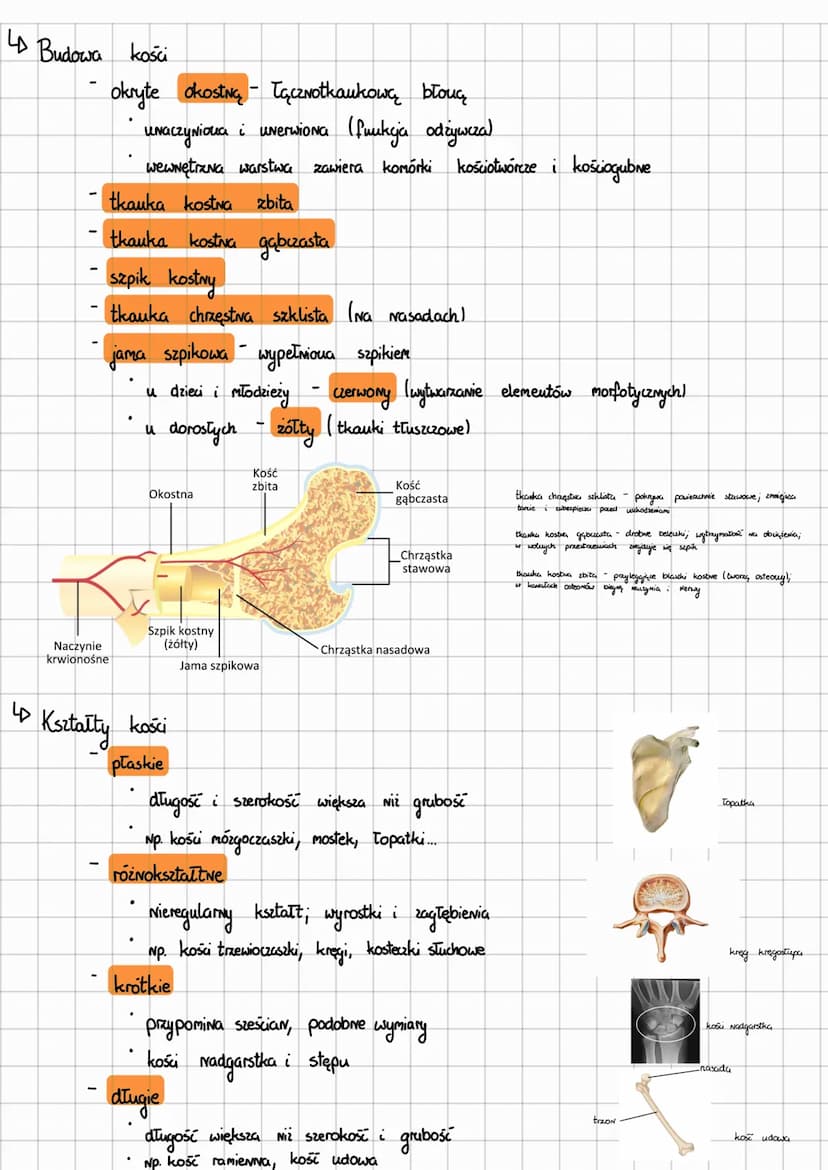 ↳ Budowa kości
- okryte okostną - łącznotkankową błoną
• unaczyniona i unerwiona (funkcja odżywcza)
• wewnętrzna warstwa zawiera komórki kościotwórcze i kościogubne
- tkanka kostna zbita
- tkanka kostna gąbczasta
- szpik kostny
- tkanka chrzęstna szklista (na nasadach)
- jama szpikowa - wypełniona szpikiem
• u dzieci i młodzieży - czerwony (wytwarzanie elementów morfotycznych)
• u dorosłych - żółty (tkanki tłuszczowe)
Okostna
Kość
zbita
Kość
gąbczasta
Chrząstka
stawowa
Naczynie
krwionośne
Szpik kostny
(żółty)
Jama szpikowa
Chrząstka nasadowa
tkanka chrzęstna szklista - pokrywa powierzchnie stawowe; zmniejsza
tarcie i zabezpiecza przed uszkodzeniami
tkanka kostna gąbczasta - drobne beleczki; wytrzymałość na obciążenia;
w wolnych przestrzeniach znajduje się szpik
tkanka kostna zbita - przylegające blaszki kostne (tworzą osteony);
w kanałach osteonów biegną naczynia i nerwy
↳ Kształty kości
- płaskie
• długość i szerokość większa niż grubość
• np. kości mózgoczaszki, mostek, łopatki...
łopatka
- różnokształtne
• nieregularny kształt; wyrostki i zagłębienia
• np. kości trzewioczaszki, kręgi, kosteczki słuchowe
kręg kręgosłupa
- krótkie
• przypomina sześcian, podobne wymiary
• kości nadgarstka i stępu
kości nadgarstka
- długie
• długość większa niż szerokość i grubość
• np. kość ramienna, kość udowa
nasada
trzon
kość udowa